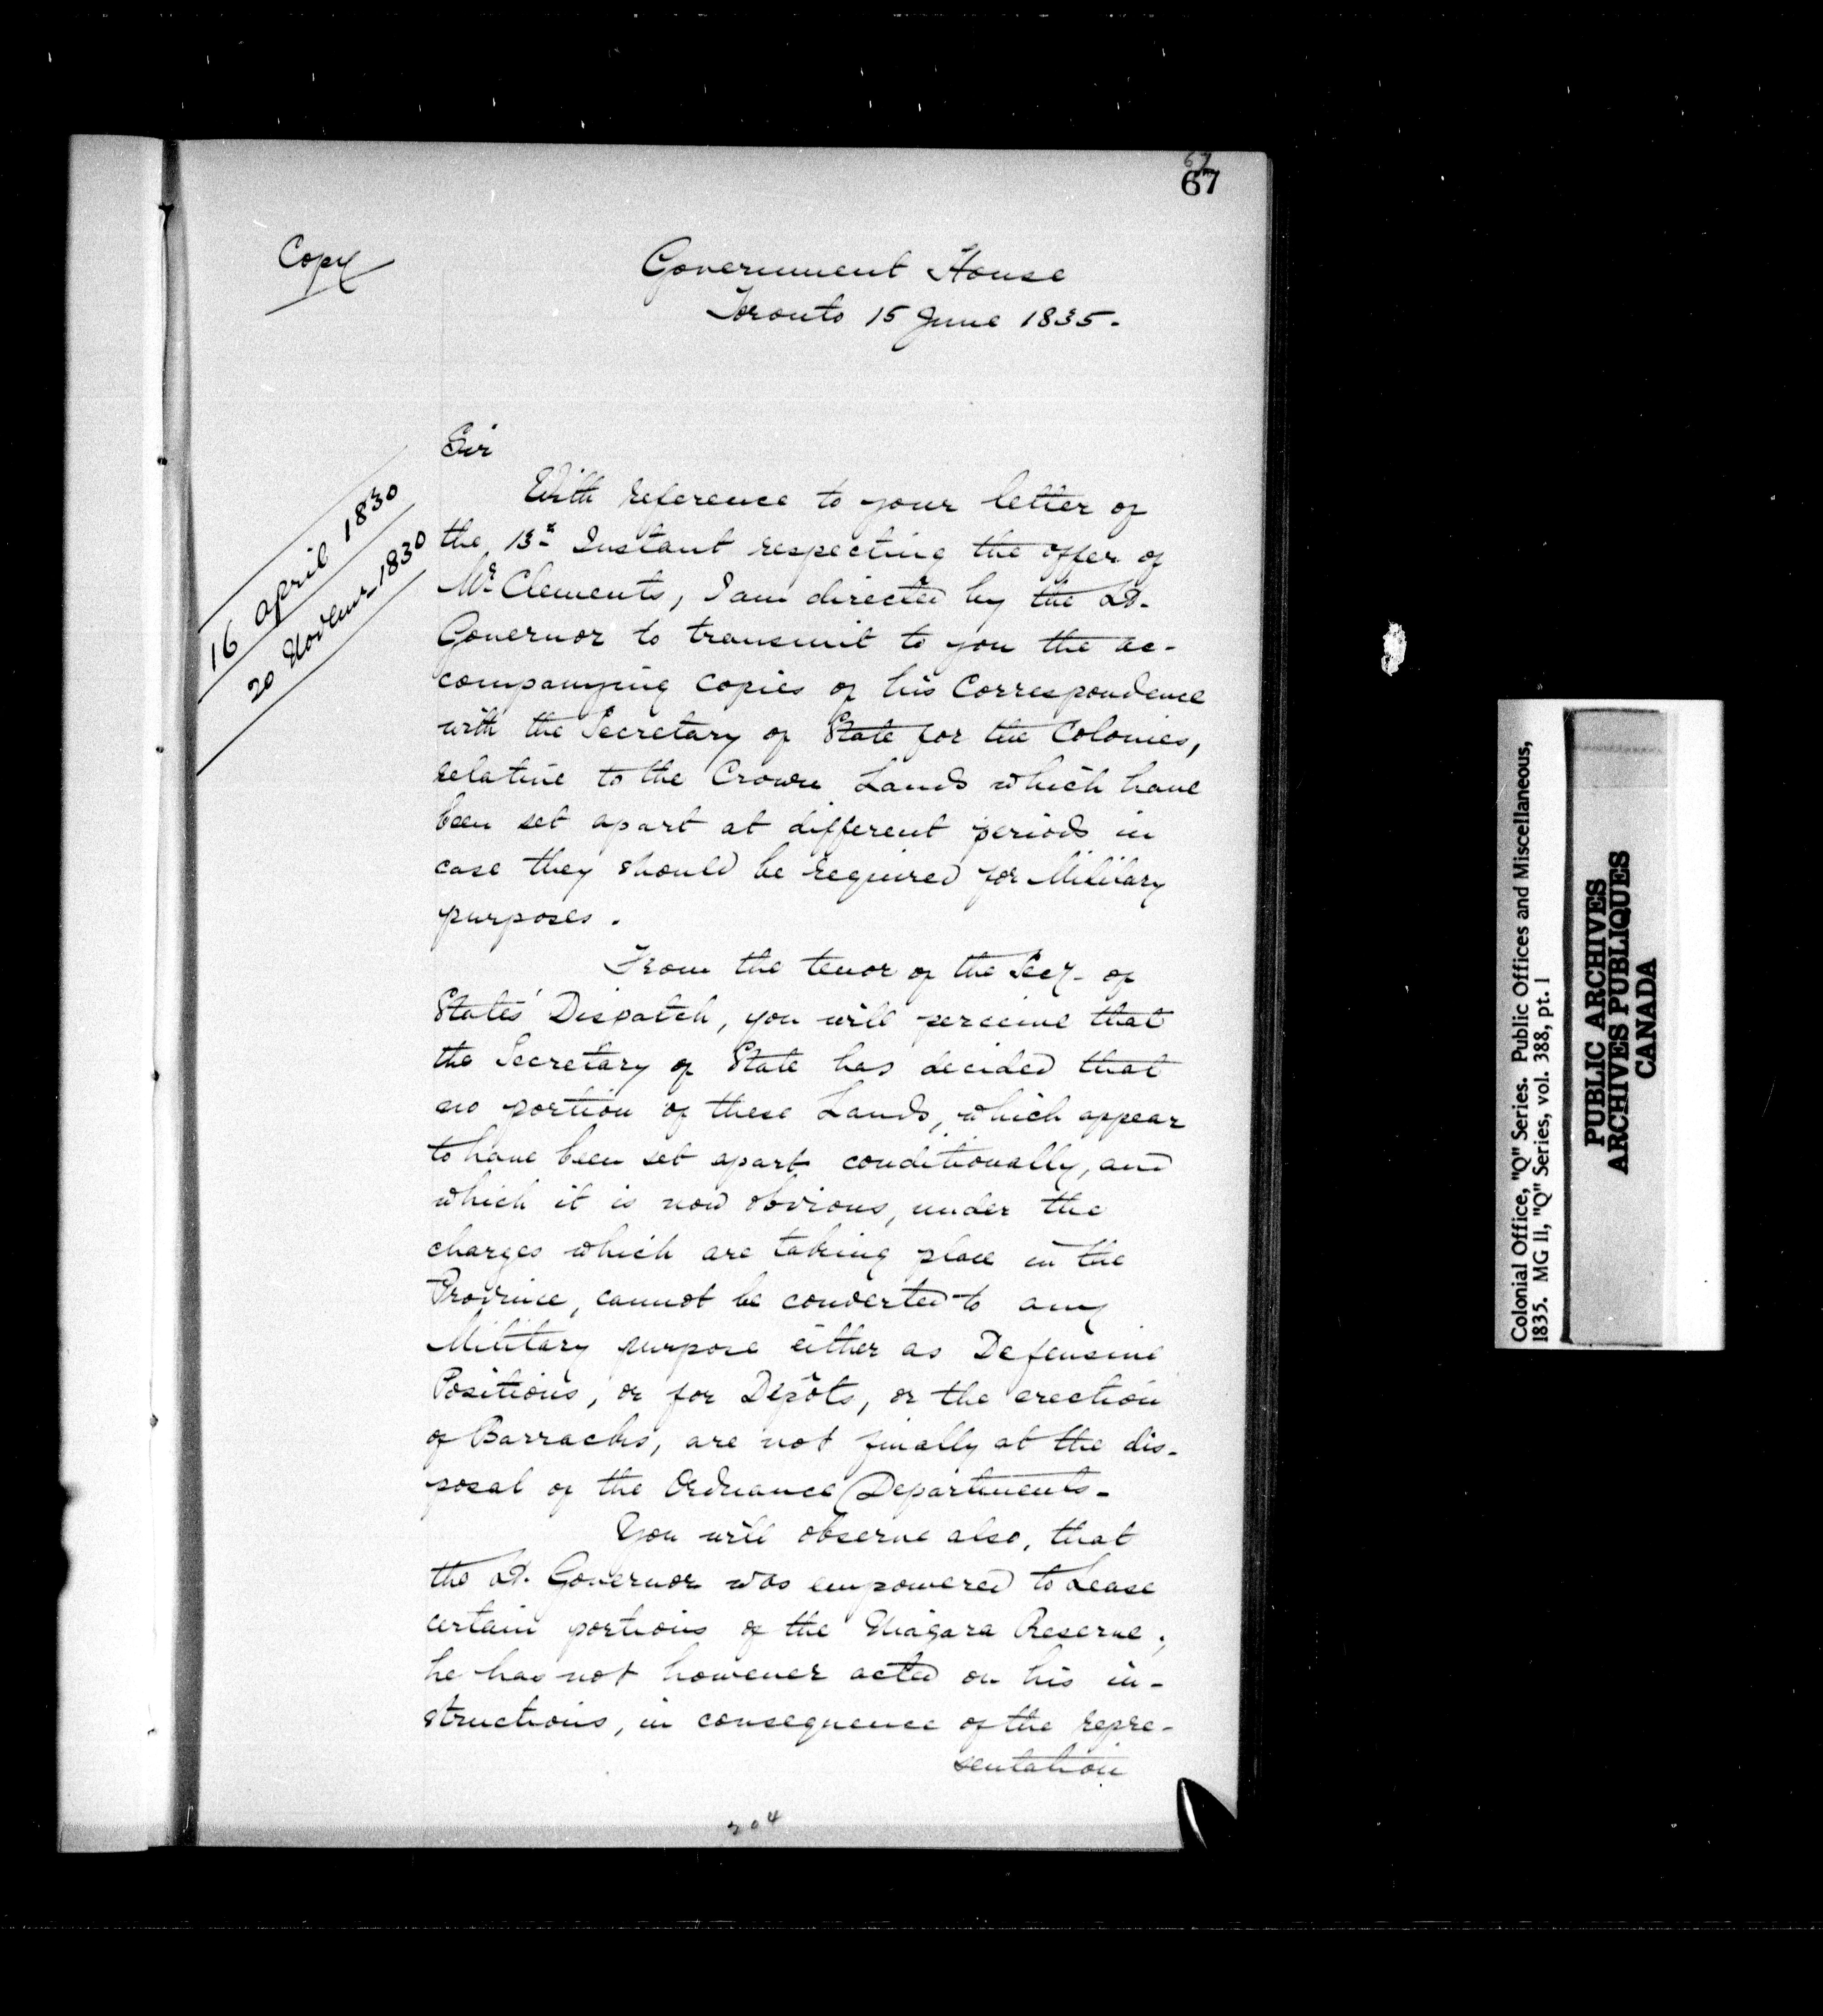 67
67
Copy
Government House
Toronto 15 June 1835.
Sir
With reference to your letter of
the 13th Instant respecting the offer of
Mr Clements, I am directed by the Lt.
Governor to transmit to you the ac-
companying copies of his Correspondence
with the Secretary of State for the Colonies,
relative to the Crown Lands which have
been set apart at different periods in
case they should be required for Military
purposes.
16 April 1830
20 Novemr 1830
From the tenor of the Secy. of
States' Dispatch, you will perceive that
the Secretary of State has decided that
no portion of these Lands, which appear
to have been set apart conditionally, and
which it is now obvious, under the
charges which are taking place in the
Province, cannot be converted to any
Military purpose either as Defensive
Positions, or for Depôts, or the erection
of Barracks, are not finally at the dis-
posal of the Ordnance Departments.
You will observe also, that
the Lt. Governor was empowered to Lease
certain portions of the Niagara Reserve;
he has not however acted on his in-
structions, in consequence of the repre-
sentation
204
Colonial Office, "Q" Series. Public Offices and Miscellaneous,
1835. MG 11, "Q" Series, vol. 388, pt. 1
PUBLIC ARCHIVES
ARCHIVES PUBLIQUES
CANADA